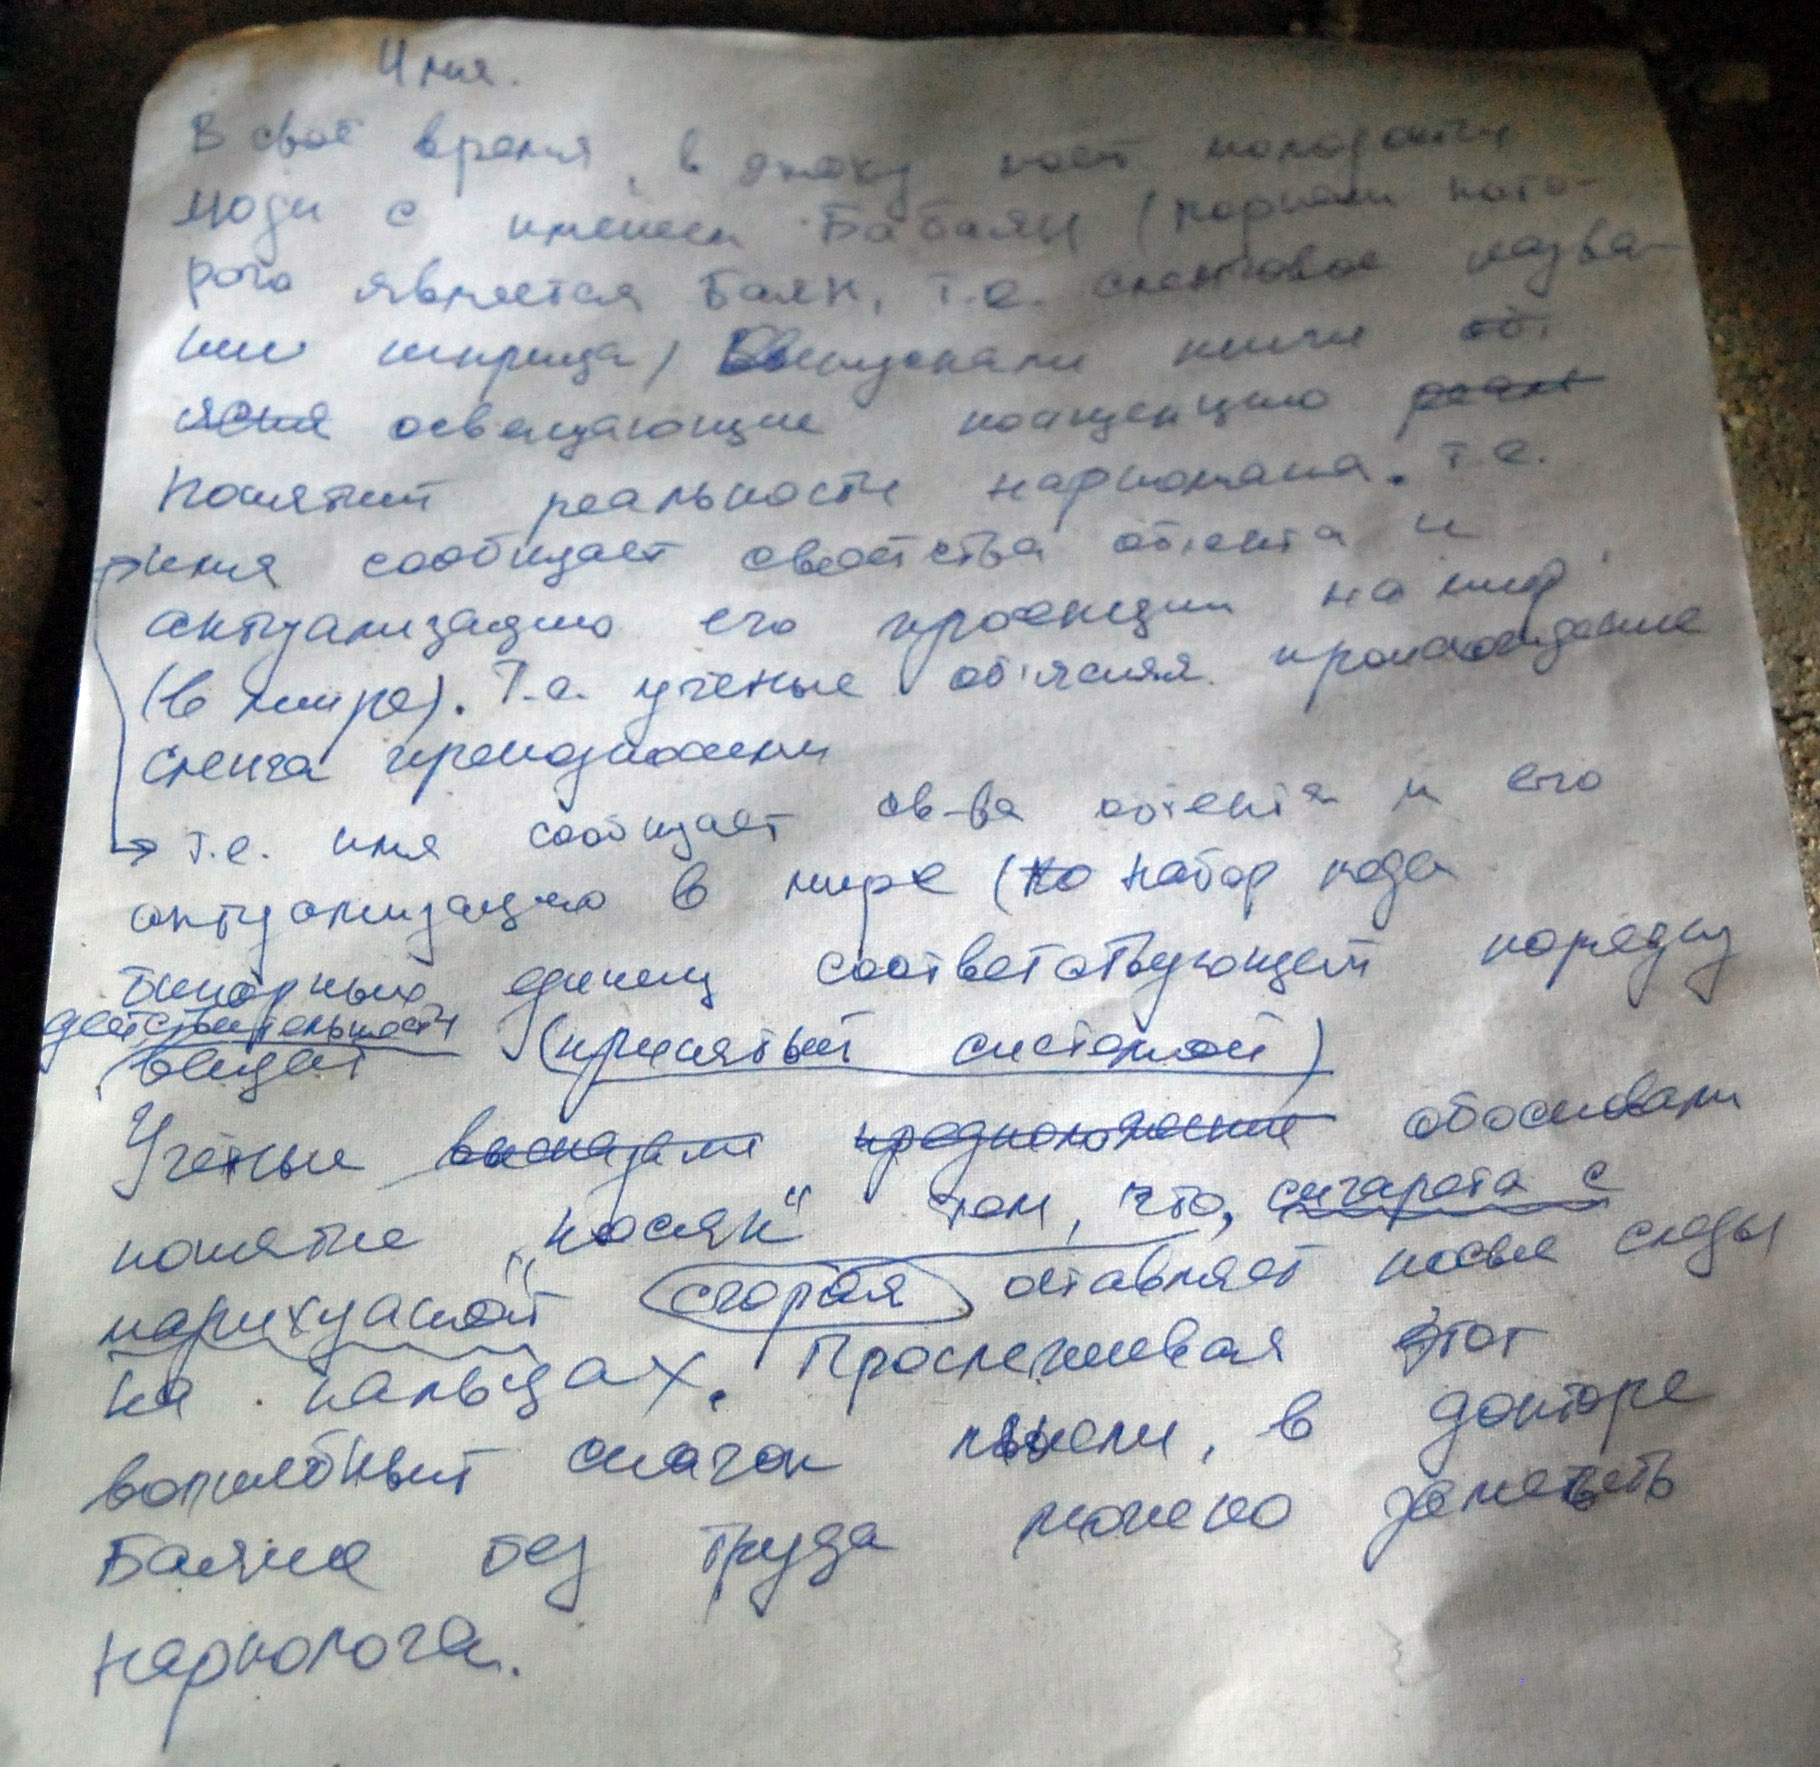 Имя.
В своё время, в эпоху моей молодости
люди с именем Бабаян (корнем кото-
рого является Баян, т.е. сленговое назва-
ние шприца) выпускали книги об'
ясня освещающие концепцию реаль
понятий реальности наркомана. т.е.
имя сообщает свойства объекта и
актуализацию его проекции на мир
(в мире). Т.е. учёные об'ясняя происхождение
сленга предложили
т.е. имя сообщает св-ва объекта и его
актуализацию в мире (ко набор кода
бинарных единиц соответствующей порядку
действительности
вещей (принятый системой)
Учёные высказали предположение обосновали
понятие "косяк" тем, что, сигарета с
марихуаной сгорая оставляет после следы
на пальцах. Прослеживая этот
волшебный скачок мысли, в докторе
Баяне без труда можно заметить
нарколога.